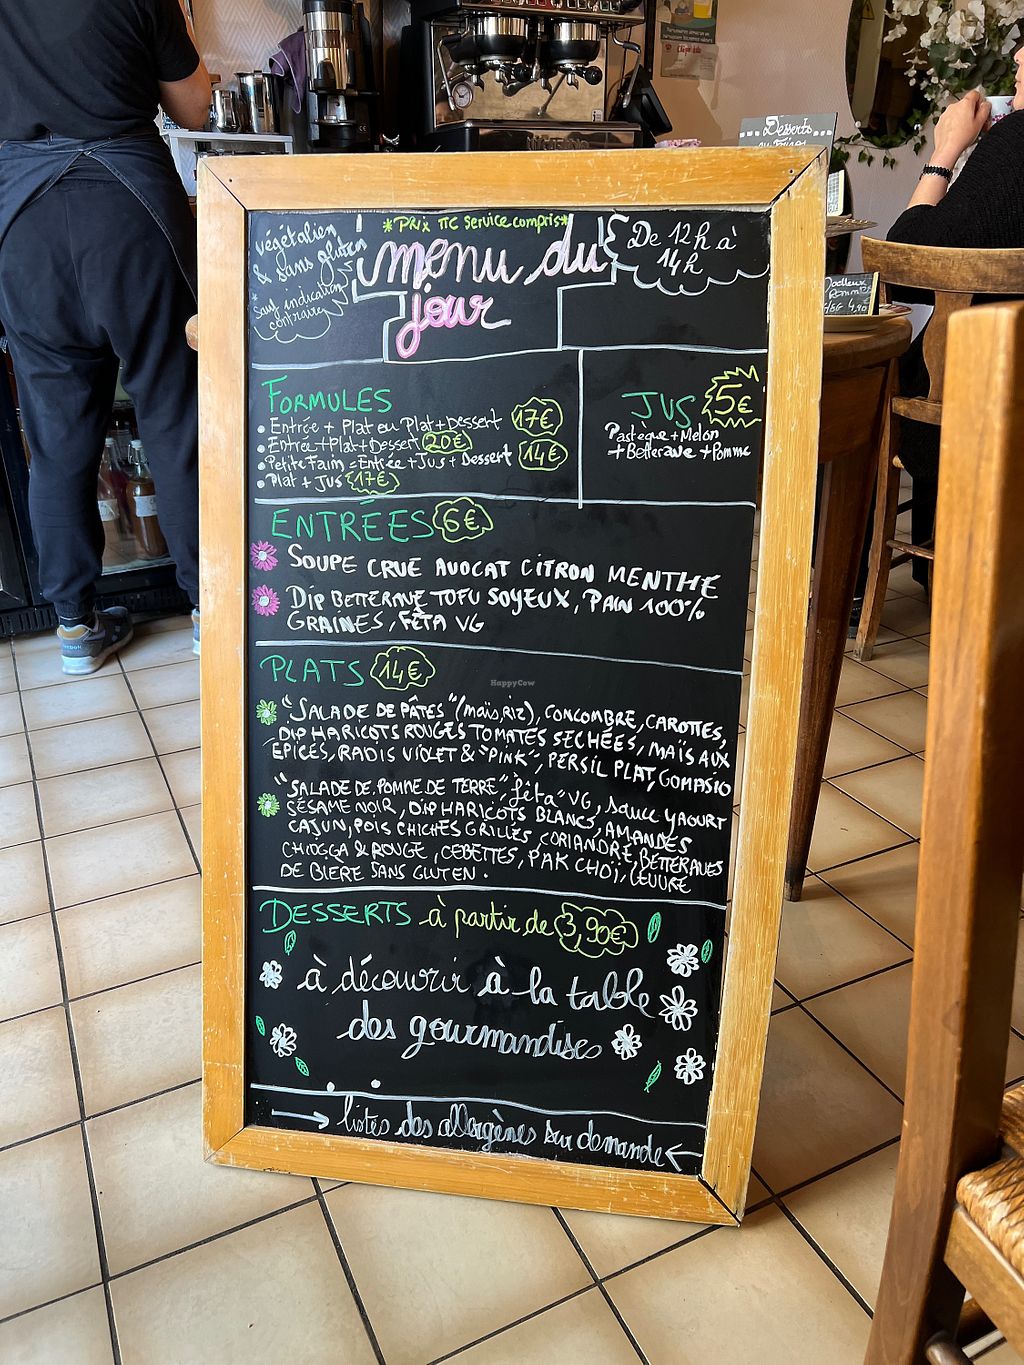 Desserts
*Prix TTC Service compris*
végétalien
& sans gluten
*Sauf indication
contraire
menu du
jour
De 12h à
14h
FORMULES
• Entrée + Plat ou Plat + Dessert 17€
• Entrée + Plat + Dessert 20€
• Petite Faim = Entrée + Jus + Dessert 14€
• Plat + Jus 17€
JUS 5€
Pastèque + Melon
+ Betterave + Pomme
ENTRÉES 6€
SOUPE CRUE AVOCAT CITRON MENTHE
DIP BETTERAVE TOFU SOYEUX, PAIN 100%
GRAINES, FÊTA VG
PLATS 14€
"SALADE DE PÂTES" (maïs, riz), CONCOMBRE, CAROTTES,
DIP HARICOTS ROUGES TOMATES SECHÉES, MAÏS AUX
EPICES, RADIS VIOLET & "PINK", PERSIL PLAT, GOMASIO
"SALADE DE POMME DE TERRE", fêta" VG, sauce YAOURT
SÉSAME NOIR, DIP HARICOTS BLANCS, AMANDES
CAJUN, POIS CHICHES GRILLÉS, CORIANDRE, BETTERAVES
CHIOGGA & ROUGE, CEBETTES, PAK CHOÏ, LEVURE
DE BIERE SANS GLUTEN.
DESSERTS à partir de 3,90€
à découvrir à la table
des gourmandises
→ listes des allergènes sur demande ←
4,90
HappyCow